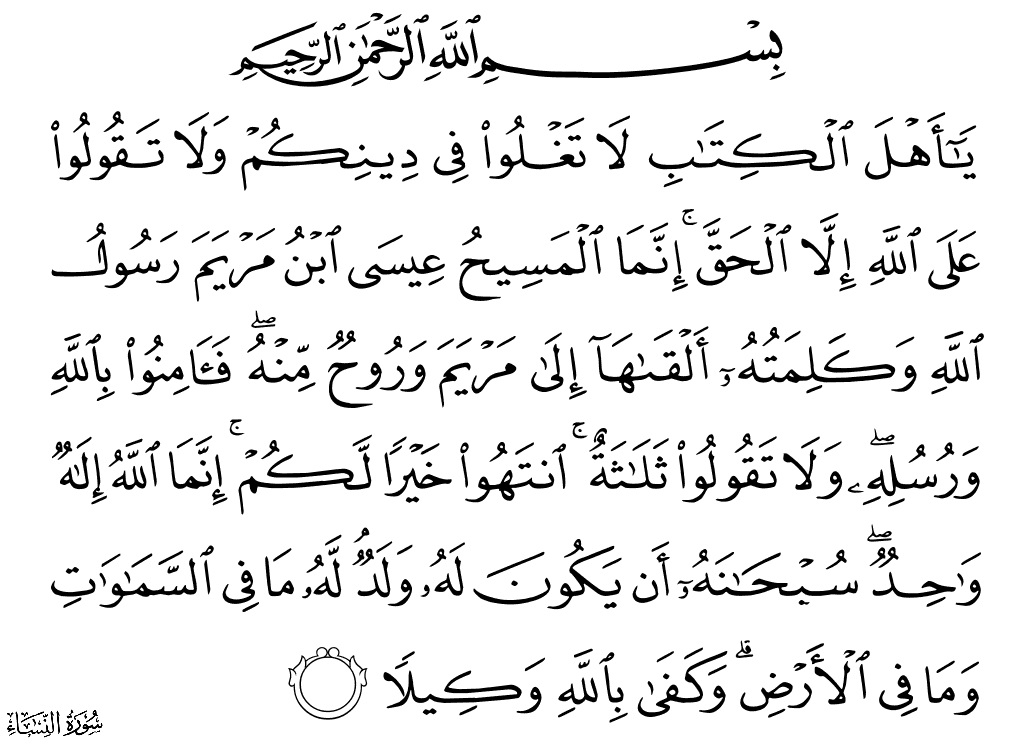 بِسْمِ ٱللَّهِ ٱلرَّحْمَٰنِ ٱلرَّحِيمِ
يَٰٓأَهْلَ ٱلْكِتَٰبِ لَا تَغْلُوا۟ فِى دِينِكُمْ وَلَا تَقُولُوا۟
عَلَى ٱللَّهِ إِلَّا ٱلْحَقَّ ۚ إِنَّمَا ٱلْمَسِيحُ عِيسَى ٱبْنُ مَرْيَمَ رَسُولُ
ٱللَّهِ وَكَلِمَتُهُۥٓ أَلْقَىٰهَآ إِلَىٰ مَرْيَمَ وَرُوحٌ مِّنْهُ ۖ فَـَٔامِنُوا۟ بِٱللَّهِ
وَرُسُلِهِۦ ۖ وَلَا تَقُولُوا۟ ثَلَٰثَةٌ ۚ ٱنتَهُوا۟ خَيْرًا لَّكُمْ ۚ إِنَّمَا ٱللَّهُ إِلَٰهٌ
وَٰحِدٌ ۖ سُبْحَٰنَهُۥٓ أَن يَكُونَ لَهُۥ وَلَدٌ ۘ لَّهُۥ مَا فِى ٱلسَّمَٰوَٰتِ
وَمَا فِى ٱلْأَرْضِ ۗ وَكَفَىٰ بِٱللَّهِ وَكِيلًا
سُورَةُ النِّسَاءِ